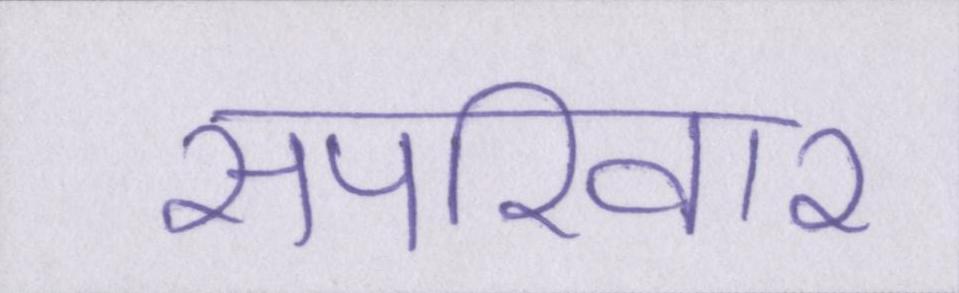 सपरिवार